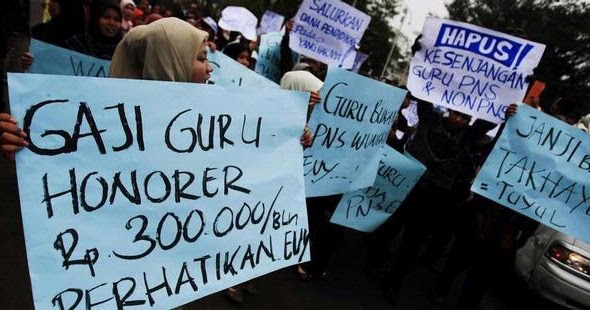 GAJI GURU
HONORER
Rp. 300.000/Bln
PERHATIKAN EUY
SALURKAN
DANA PENDIDIKAN
YANG
HAPUS!
KESENJANGAN
GURU PNS
& NON PNS
GURU
PNS
EUY...
GURU
PNS
JANJI
TAKHAYUL
= TUYUL